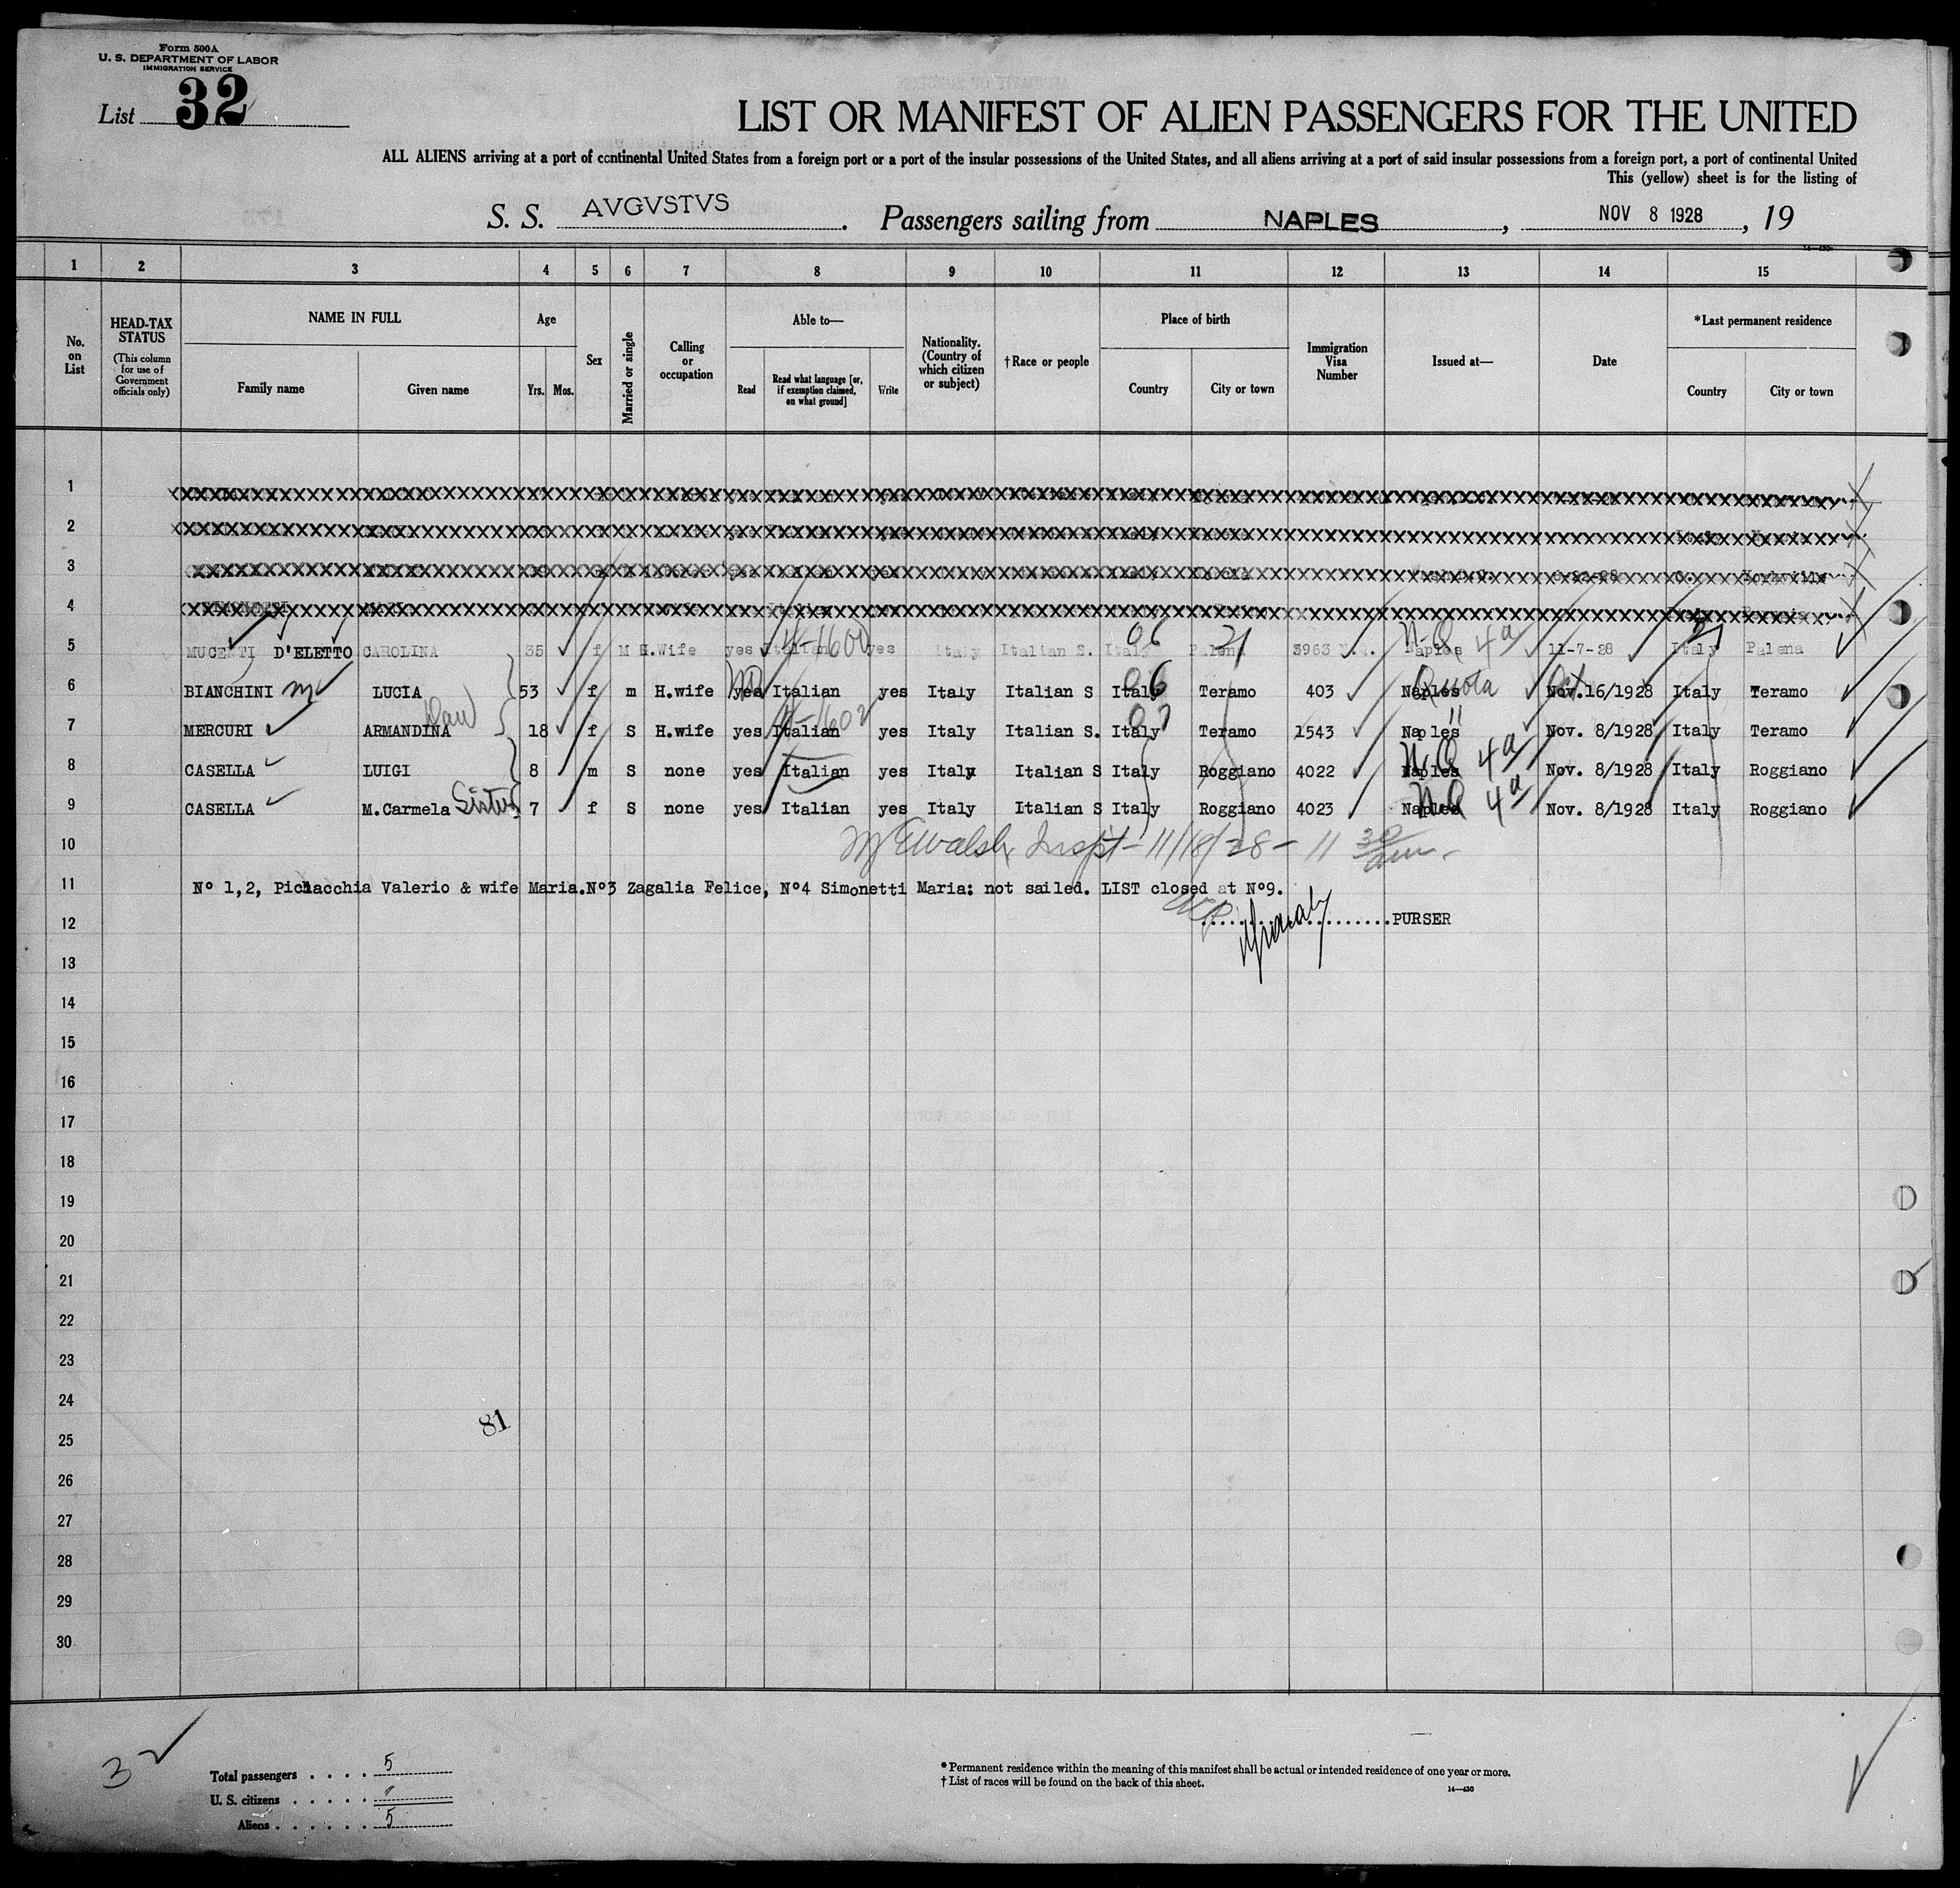 Form 500A
U. S. DEPARTMENT OF LABOR
IMMIGRATION SERVICE
List 32
LIST OR MANIFEST OF ALIEN PASSENGERS FOR THE UNITED
ALL ALIENS arriving at a port of continental United States from a foreign port or a port of the insular possessions of the United States, and all aliens arriving at a port of said insular possessions from a foreign port, a port of continental United
This (yellow) sheet is for the listing of
S. S. AVGVSTVS. Passengers sailing from NAPLES, NOV 8 1928, 19
1 2 3 4 5 6 7 8 9 10 11 12 13 14 15
No. on List
HEAD-TAX STATUS
(This column for use of Government officials only)
NAME IN FULL
Family name
Given name
Age
Yrs. Mos.
Sex
Married or single
Calling or occupation
Able to—
Read
Read what language [or, if exemption claimed, on what ground]
Write
Nationality. (Country of which citizen or subject)
†Race or people
Place of birth
Country
City or town
Immigration Visa Number
Issued at—
Date
*Last permanent residence
Country
City or town
1
2
3
4
5 MUCENTI D'ELETTO CAROLINA 35 f M H.Wife yes Italian yes Italy Italian S. Italy Palena 3963 Naples N-Q 4a 11-7-28 Italy Palena
6 BIANCHINI LUCIA 53 f m H.wife yes Italian yes Italy Italian S Italy 06 Teramo 403 Naples Quota Nov.16/1928 Oct Italy Teramo
7 MERCURI ARMANDINA Dau 18 f S H.wife yes Italian yes Italy Italian S. Italy Teramo 1543 Naples " Nov. 8/1928 Italy Teramo
8 CASELLA LUIGI 8 m S none yes Italian yes Italy Italian S Italy Roggiano 4022 Naples N-Q 4a Nov. 8/1928 Italy Roggiano
9 CASELLA M.Carmela Sister 7 f S none yes Italian yes Italy Italian S Italy Roggiano 4023 Naples N-Q 4a Nov. 8/1928 Italy Roggiano
10 Walsh Inspt - 11/18/28 - 11 30 am -
11 Nº 1,2, Pichacchia Valerio & wife Maria.Nº3 Zagalia Felice, Nº4 Simonetti Maria: not sailed. LIST closed at Nº9.
12 ....................PURSER
13
14
15
16
17
18
19
20
21
22
23
24
81
25
26
27
28
29
30
32
Total passengers . . . . 5
U. S. citizens . . . . . "
Aliens . . . . . . 5
* Permanent residence within the meaning of this manifest shall be actual or intended residence of one year or more.
† List of races will be found on the back of this sheet.
14—430